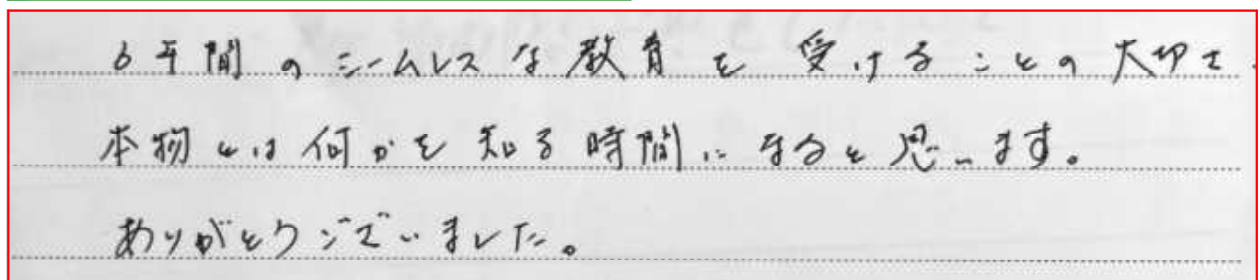 6年間のシームレスな教育を受けることの大切さ、
本物とは何かを知る時間になると思います。
ありがとうございました。